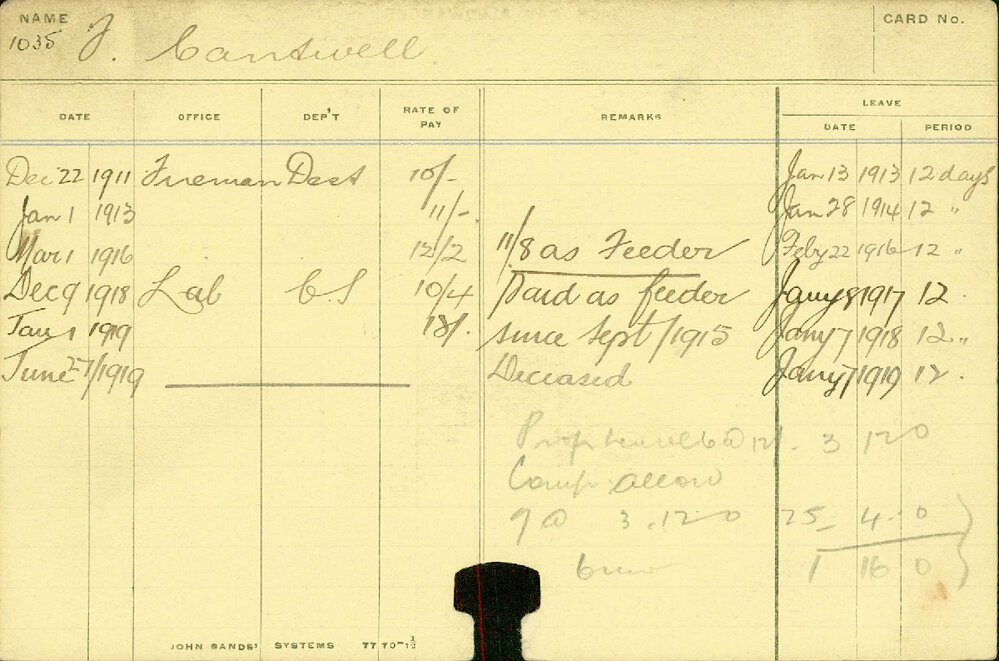 NAME CARD No.
1035 J. Cantwell
LEAVE
DATE OFFICE DEP'T RATE OF PAY REMARKS DATE PERIOD
Dec 22 1911 Fireman Dest 10/- Jan 13 1913 12 days
Jan 1 1913 11/- Jan 28 1914 12 "
Mar 1 1916 12/2 11/8 as Feeder Feby 22 1916 12 "
Dec 9 1918 Lab C.S 10/4 paid as feeder Jany 8 1917 12 .
Jan 1 1919 12/. since Sept/1915 Jany 7 1918 12 "
June 27/1919 Deceased Jany 7 1919 12 .
6 @ 12/. 3 12 0
Comp. allow
7 @ 3 . 12 0 25 4 . 0
1 16 0
JOHN SANDS' SYSTEMS